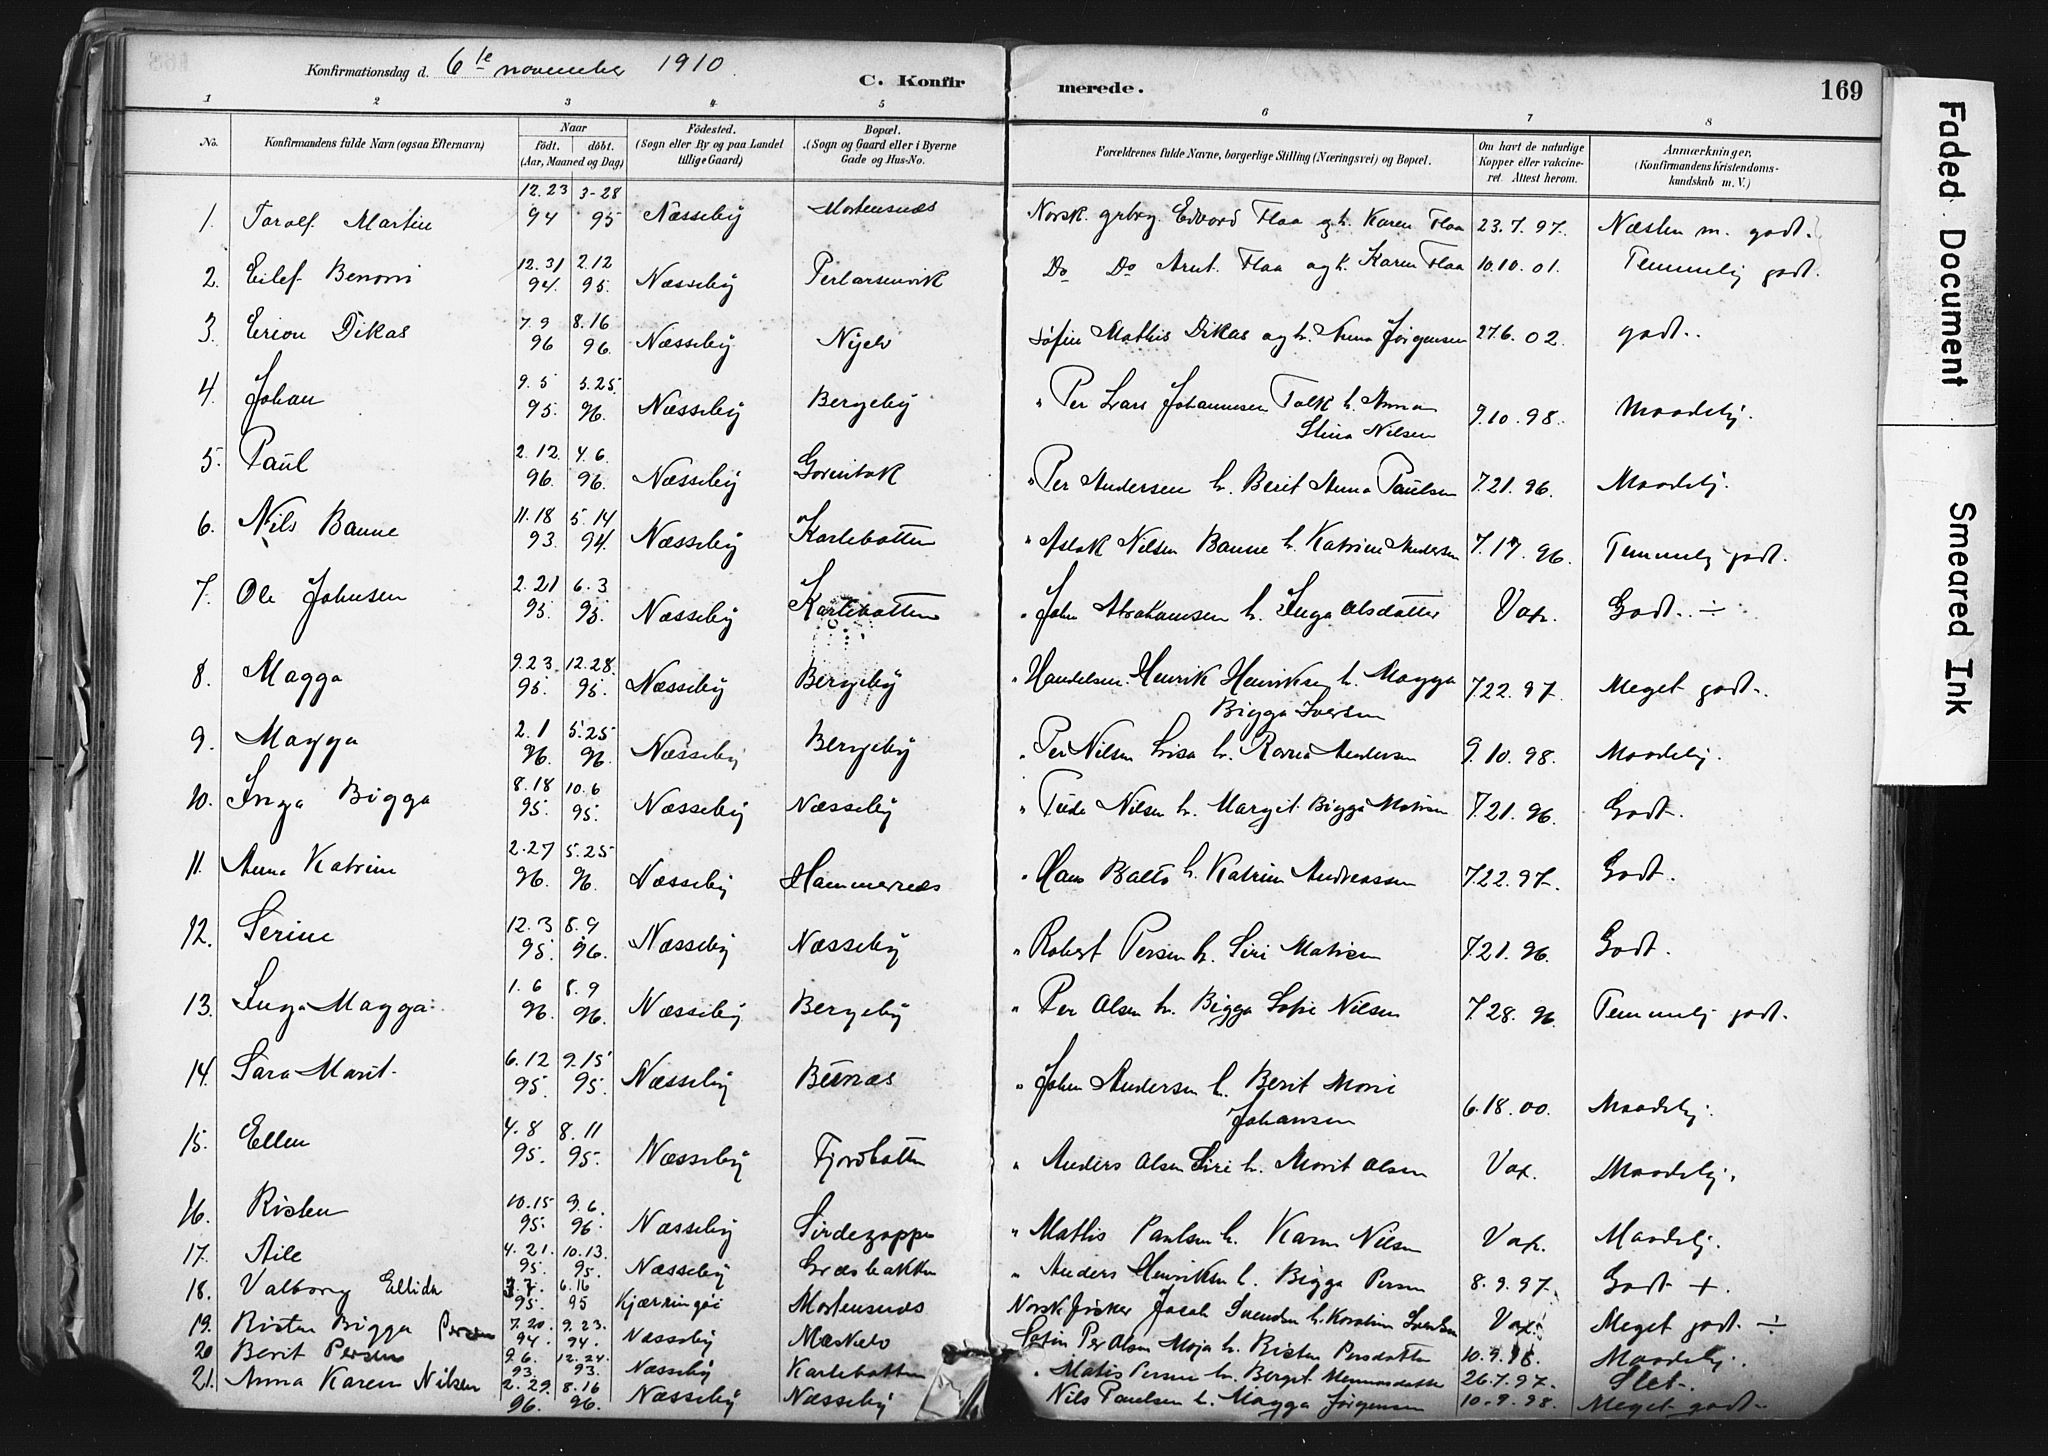 Konfirmationsdag d. 6te november 1910. C. Konfirmerede. 169
1 2 3 4 5 6 7 8
No. Konfirmandens fulde Navn (ogsaa Efternavn) Naar födt. döbt. (Aar, Maaned og Dag) Födested. (Sogn eller By og paa Landet tillige Gaard) Bopæl. (Sogn og Gaard eller i Byerne Gade og Hus-No. Forældrenes fulde Navne, borgerlige Stilling (Næringsvei) og Bopæl. Om havt de naturlige Kopper eller vakcineret. Attest herom. Anmærkninger. (Konfirmandens Kristendomskundskab m. V.)
1. Toralf Martin 12.23 94 3-28 95 Næsseby Mortensnæs Norsk. grbrg. Edvard Flaa og h. Karen Flaa 23.7.97. Næsten m. godt.
2. Eilef Benoni 12.31 94. 2.12 95. Næsseby Perlarsenvik Do Do Arnt. Flaa og h. Karen Flaa 10.10.01. Temmelig godt.
3. Erion Dikas 7.9 96 8.16 96. Næsseby Nyelv Mathis Dikas og h. Anna Jørgensen 27.6.02. godt.
4. Johan 9.5 95. 5.25. 96. Næsseby Bergeby " Per Lars Johannesen Tolk h. Anna Stina Nilsen 9.10.98. Maadelig.
5. Paul 2.12 96. 4.6. 96. Næsseby " Per Andersen h. Berit Anna Paulsen 7.21.96. Maadelig.
6. Nils Banne 11.18 93. 5.14 94. Næsseby Karlebotten " Aslak Nilsen Banne h. Katrine Andersen 7.17.96. Temmelig godt.
7. Ole Johnsen 2.21 95. 6.3 95. Næsseby Karlebotten " John Abrahamsen h. Inga Olsdatter Vax. Godt. ÷
8. Magga 9.23. 95. 12.28. 95. Næsseby Bergeby " Handelsm. Henrik Henriksen h. Magga Bigga Iversen 7.22.97. Meget godt.
9. Magga 2.1 96. 5.25 96. Næsseby Bergeby " Per Nilsen h. Andersen 9.10.98. Maadelig.
10. Inga Bigga 8.18 95. 10.6 95. Næsseby Næsseby " Nilsen h. Margit Bigga Matisen 7.21.96. Godt.
11. Anna Katrine 2.27 96. 5.25 96. Næsseby Hammernæs " Hans Balto h. Katrine Andreassen 7.22.97. Godt.
12. Serine 12.3 95. 8.9 96. Næsseby Næsseby " Robert Persen h. Siri Matisen 7.21.96. Godt.
13. Inga Magga 1.6 96. 8.9 96. Næsseby Bergeby " Per Olsen h. Bigga Sofie Nilsen 7.28.96. Temmelig godt.
14. Sara Marit 6.12 95. 9.15 95. Næsseby Bunæs " John Andersen h. Berit Marie Johansen 6.18.00. Maadelig.
15. Ellen 4.8 95. 8.11 95. Næsseby Fjordbotten " Anders Olsen Siri h. Marit Olsen Vax. Maadelig.
16. Risten 10.15 95. 9.6. 96. Næsseby " Mathis Paulsen h. Karen Nilsen Vax. Maadelig.
17. Aile 4.21. 95. 10.13. 95. Næsseby Græsbakken " Anders Henriksen h. Bigga Persen 8.9.97. Godt +
18. Valborg Ellida 3.7. 95. 6.16 95 Kjærringøi Mortensnæs Norsk fisker Jacob Svendsen h. Karoline Svendsen Vax. Meget godt ÷
19. Risten Bigga Persen 7.20. 94. 9.23. 94. Næsseby Mæskelv Per Olsen Maja h. Risten Persdatter 10.9.98. Maadelig.
20 Berit Persen 9.6. 93. 12.24. 93. Næsseby Karlebotten " Matis Persen h. Berget 26.7.97. Slet.
21. Anna Karen Nilsen 2.29. 96. 8.16 96. Næsseby Næsseby Nils Paulsen h. Magga Jørgensen 10.9.98. Meget godt.
Faded Document
Smeared Ink